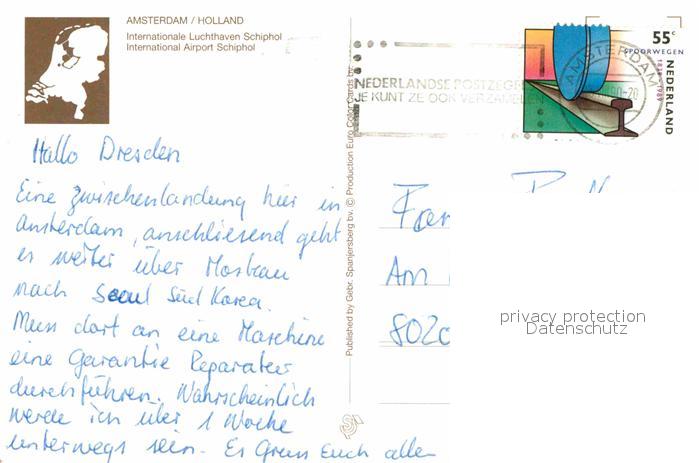 AMSTERDAM / HOLLAND
Internationale Luchthaven Schiphol
International Airport Schiphol
Hallo Dresden
Eine Zwischenlandung hier in
Amsterdam, anschliesend geht
es weiter über Moskau
nach Seoul Süd Korea.
Muss dort an eine Maschine
eine Garantie Reparatur
durchführen. Wahrscheinlich
werde ich über 1 Woche
unterwegs sein. Es Grüss Euch allen
Published by Gebr. Spanjersberg bv. © Production Euro Color Cards bv.
NEDERLANDSE POSTZEGE
JE KUNT ZE OOK VERZAMELEN
AMSTERDAM
55c
SPOORWEGEN
1839-1989
NEDERLAND
Fam
Am
802
privacy protection
Datenschutz